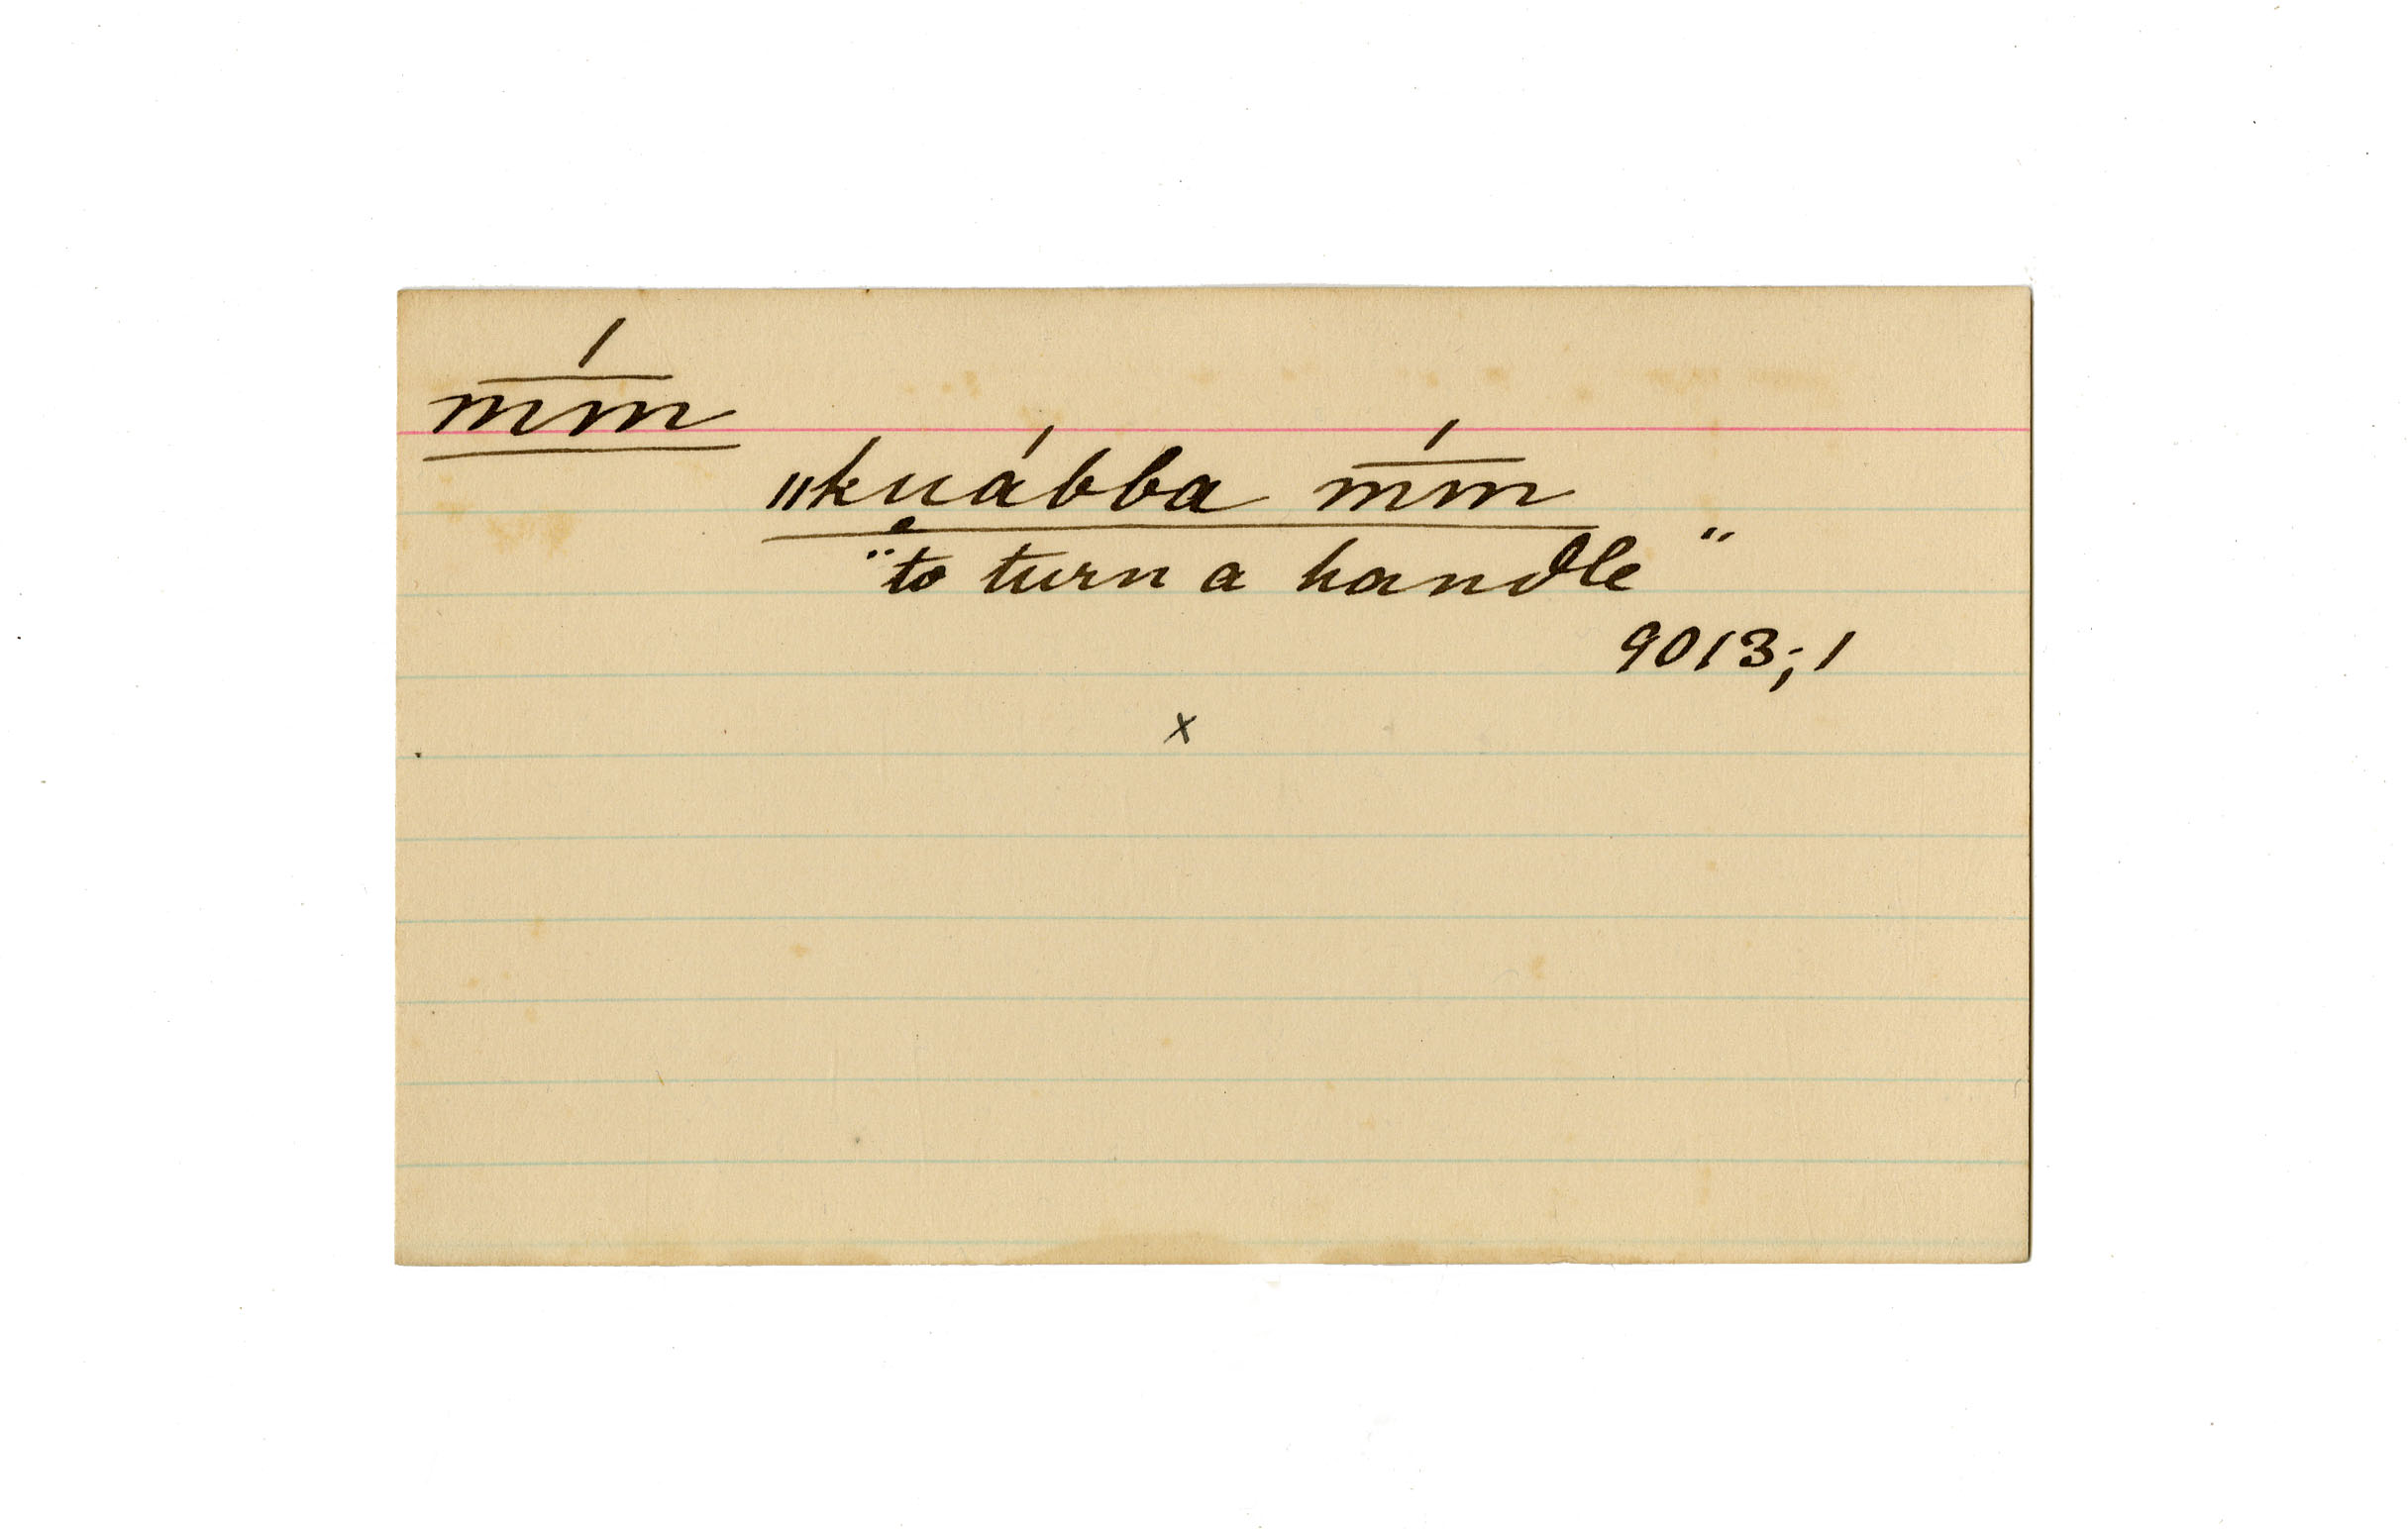 ḿ͞m
ǁkṵábba ḿ͞m
"to turn a handle"
9013; 1
x